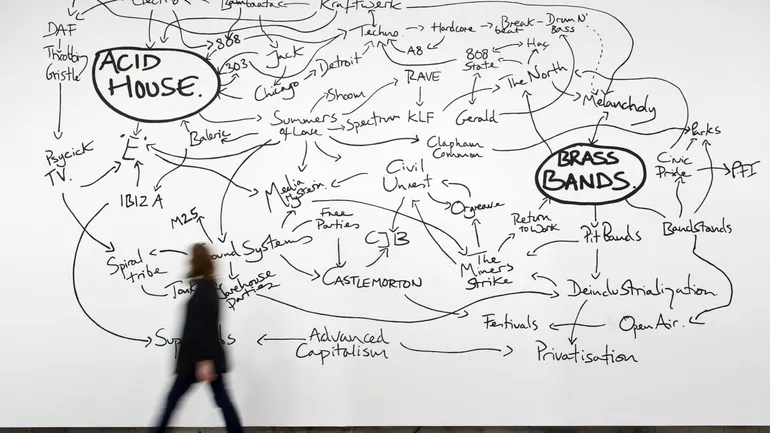 Kraftwerk
DAF
Throbbing
Gristle
ACID
HOUSE.
808
303
Jack
Chicago
Detroit
Techno
Hardcore
Break-
beat
Drum N'
Bass
A8
808
State
Hac
The North
RAVE
Melancholy
Shoom
Summers
of Love
Spectrum
KLF
Gerald
Baleric
Clapham
Common
Parks
Psycick
TV.
'E'
IBIZA
Media
Hysteria.
Civil
Unrest
BRASS
BANDS.
Civic
Pride
PFI
M25
Free
Parties
CJB
Orgreave
Return
to Work
Pit Bands
Bandstands
Spiral
tribe
Sound Systems
Warehouse
Parties
CASTLEMORTON
The
Miners
Strike
Deindustrialization
Festivals
Open Air.
Advanced
Capitalism
Privatisation